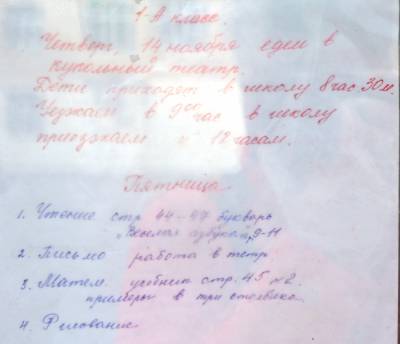 1-А класс.
Четверг, 14 ноября едем в
кукольный театр.
Дети приходят в школу 8 час 30 м.
Уезжаем в 9 00 час в школу
приезжаем к 12 часам.
Пятница
1. Чтение стр 44-47 букварь
"Веселая азбука", 9-11
2. Письмо работа в тетр
3. Матем. учебник стр. 45 №2.
примеры в три столбика.
4. Рисование